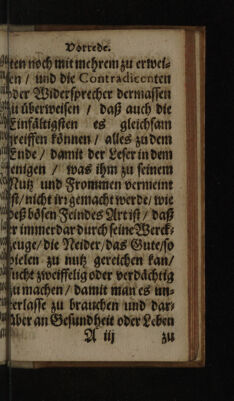 Vorrede.
ten noch mit mehrem zu erwei-
en / und die Contradicenten
oder Widersprecher dermassen
zu überweisen / daß auch die
Einfältigsten es gleichsam
greiffen können / alles zu dem
Ende / damit der Leser in dem
jenigen / was ihm zu seinem
Nutz und Frommen vermeint
ist / nicht irr gemacht werde / wie
deß bösen Feindes Art ist / daß
er immerdar durch seine Werck-
zeuge / die Neider / das Gute / so
vielen zu nutz gereichen kan /
sucht zweiffelig oder verdächtig
zu machen / damit man es un-
terlasse zu brauchen und dar-
über an Gesundheit oder Leben
A iij zu